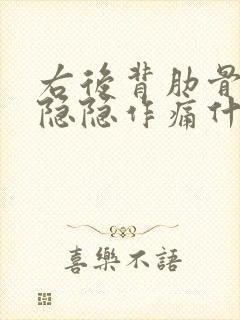 右後背肋骨
隐隐作痛什
喜樂不語